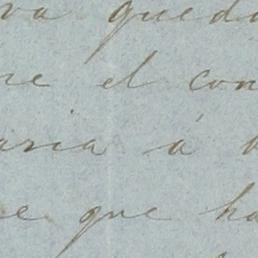 va queda
re el con
aria á
e que ha